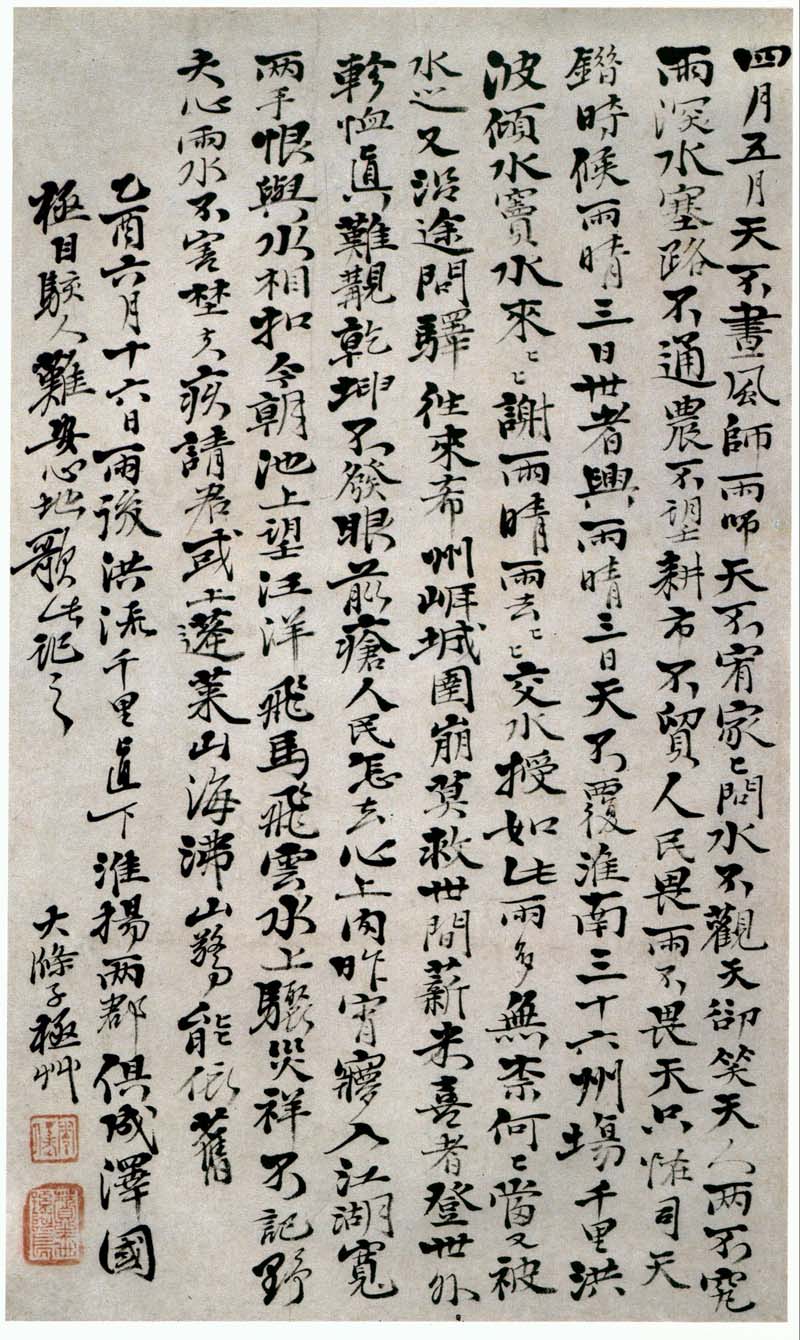 四月五月天不晝風師雨師天不宥家〻問水不觀天卻笑天人兩不究
雨深水塞路不通農不望耕市不貿人民畏雨不畏天只怪司天
錯時候雨晴三日世者興雨晴三日天不覆淮南三十六州場千里洪
波傾水竇水來〻謝雨晴雨去〻交水授如此雨多無柰何〻當又被
水迆又沿途問驛徃來希州崕城圍崩莫救世間薪米喜者登世外
軫恤真難覯乾坤不發眼前瘡人民怎去心上肉昨宵寢入江湖寬
兩手恨與水相扣今朝池上望汪洋飛馬飛雲水上驟災祥不記野
夫心雨水不害埜夫疾請君或上蓬萊山海沸山驚能依舊
乙酉六月十六日雨後洪流千里直下淮揚兩郡俱成澤國
極目駭人難安心地歌此記之
大滌子極艸